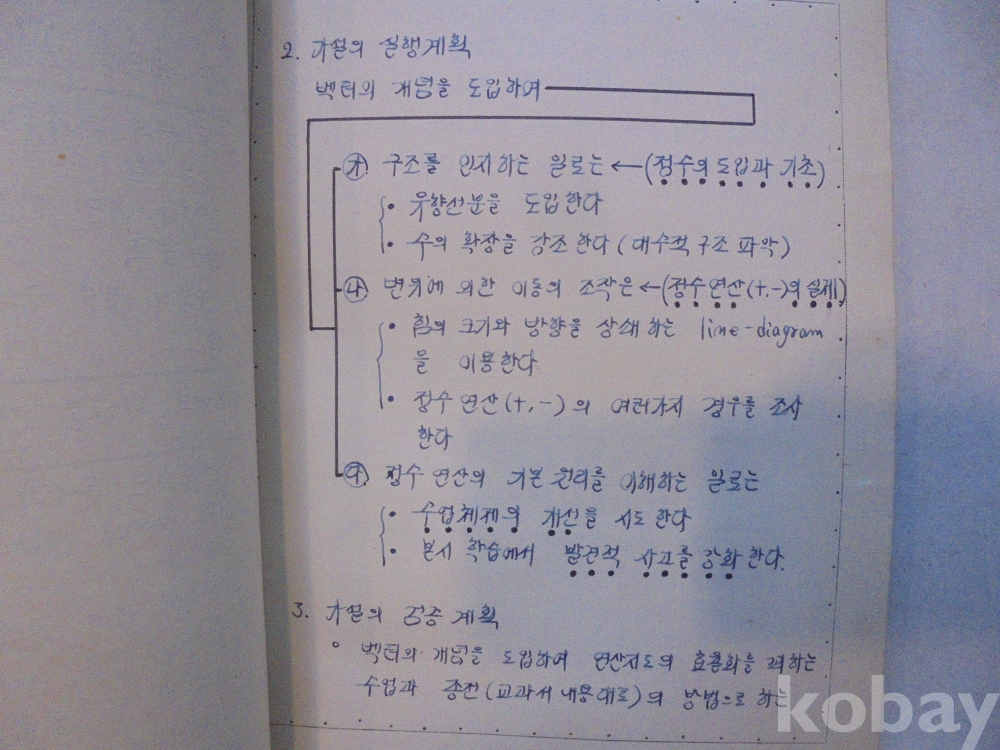 2. 가설의 실행계획
벡터의 개념을 도입하여
㉮ 구조를 인지하는 일로는 ←(정수의 도입과 기초)
• 유향선분을 도입한다
• 수의 확장을 강조한다 (대수적 구조 파악)
㉯ 변위에 의한 이동의 조작은 ←(정수연산(+,-)의 실제)
• 힘의 크기와 방향을 상쇄하는 line-diagram
을 이용한다
• 정수 연산(+,-)의 여러가지 경우를 조사
한다
㉰ 정수 연산의 기본 원리를 이해하는 일로는
• 수업체제의 개선을 시도한다
• 본시 학습에서 발견적 사고를 강화한다.
3. 가설의 검증 계획
° 벡터의 개념을 도입하여 연산지도의 효율화를 꾀하는
수업과 종전(교과서 내용대로)의 방법으로 하는
kobay